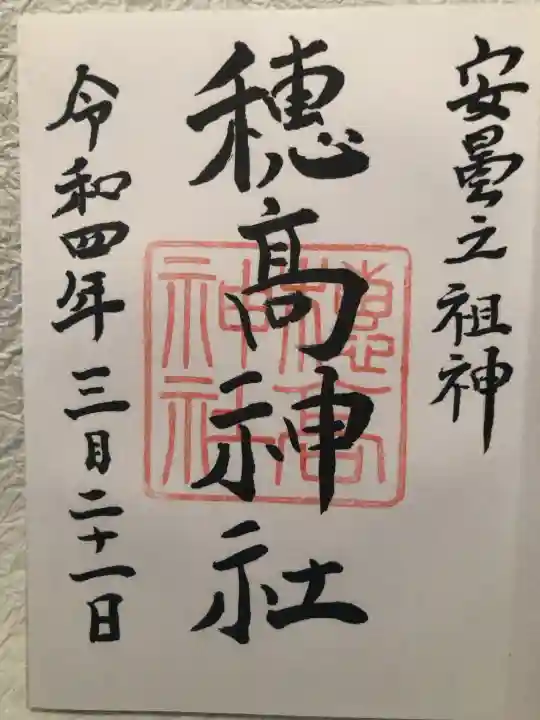 安曇之祖神
穂髙神社
穂髙神社
令和四年三月二十一日